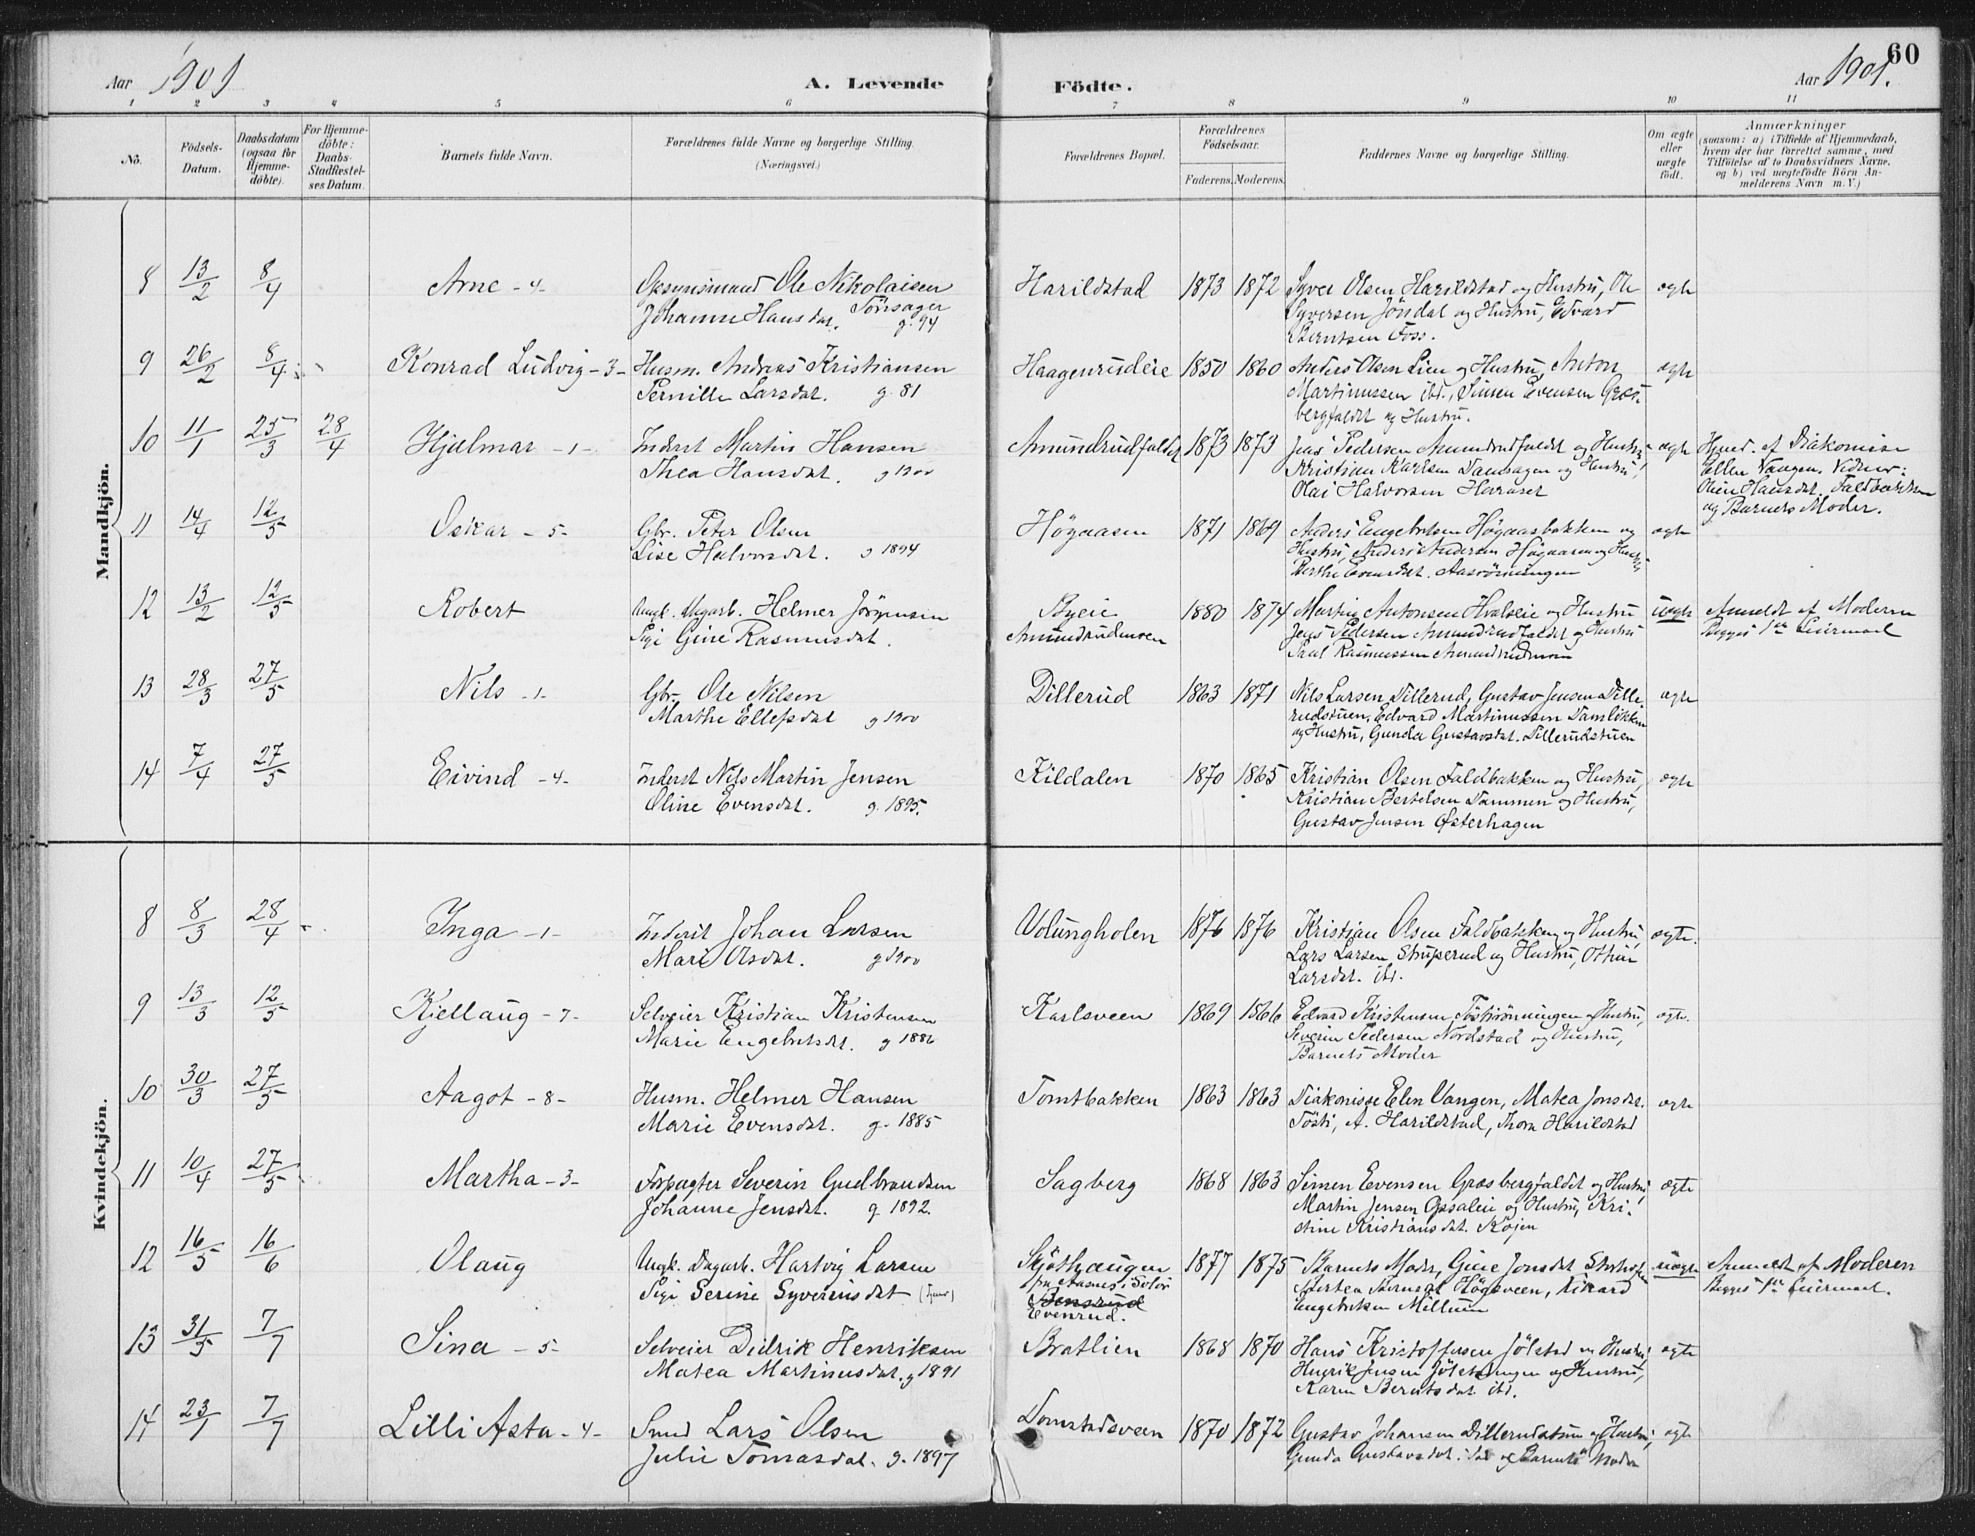 Aar 1901 A. Levende Födte. Aar 1901. 60
1 2 3 4 5 6 7 8 9 10 11
No. Födsels-Datum. Daabsdatum (ogsaa for Hjemme-döbte). For Hjemme-döbte: Daabs-Stadfæstel-ses Datum. Barnets fulde Navn. Forældrenes fulde Navne og borgerlige Stilling. (Næringsvei.) Forældrenes Bopæl. Forældrenes Födselsaar. Faderens. Moderens. Faddernes Navne og borgerlige Stilling. Om ægte eller uægte födt. Anmærkninger (saasom: a) i Tilfælde af Hjemmedaab, hvem der har forrettet samme, med Tilföielse af to Daabsvidners Navne, og b) ved uægtefödte Börn An-melderens Navn m. V.)
Mandkjön.
8 13/2 8/4 Arne - 4 - Opsynsmand Ole Nikolaisen Harildstad 1873 1872 Syver Olsen Harildstad og Hustru, Ole ægte
Johanne Hansdat. Tönsager g. 94 Syversen Jöndal og Hustru, Edvard
Berntsen Foss.
9 26/2 8/4 Konrad Ludvig - 3 - Husm. Andreas Kristiansen Haagenrudeie 1850 1860 Anders Olsen Lien og Hustru, Anton ægte
Pernille Larsdat. g. 81 Martinussen ibd., Simen Evensen Græs-
bergfaldet og Hustru.
10 11/1 25/3 28/4 Hjalmar - 1 - Inderst Martin Hansen Amundrudfaldet 1873 1873 Jens Pedersen Amundrudfaldet og Hustru, ægte Hjmd. af Diakonisse
Thea Hansdat. g 1900 Kristian Karlsen Damsagen og Hustru, Ellen Vangen. Vidner:
Olai Halvorsen Hæraset Oline Hansdat. Faldbakken
og Barnets Moder.
11 14/4 12/5 Oskar - 5 - Gbr. Peter Olsen Högaasen 1871 1869 Anders Engebretsen Högaasbakken og ægte
Lise Halvorsdat. g 1894 Hustru, Anders Andersen Högaasen og Hustru
Berthe Evensdat. Aasrönningen
12 13/2 12/5 Robert Ungk. Dagarb. Helmer Jörgensen Byeie 1880 1874 Martin Antonsen Hvalseie og Hustru uægte Anmeldt af Moderen
Pige Gine Rasmusdat. Amundrudmoen Jens Pedersen Amundrudfaldet og Hustru Begges 1ste Leiermaal
Paul Rasmussen Amundrudmoen
13 28/3 27/5 Nils - 1 - Gbr. Ole Nilsen Dillerud 1863 1871 Nils Larsen Dillerud, Gustav Jensen Dille- ægte
Marthe Ellefsdat g 1900 rudstuen, Edvard Martinussen Damløkken
og Hustru, Gunda Gustavsdat. Dillerudstuen
14 7/4 27/5 Eivind - 4 - Inderst Nils Martin Jensen Kildalen 1870 1865 Kristian Olsen Faldbakken og Hustru, ægte
Oline Evensdat. g. 1895. Kristian Bertelsen Dammen og Hustru,
Gustav Jensen Østerhagen
Kvindekjön.
8 8/3 28/4 Inga - 1 - Inderst Johan Larsen Volungholen 1876 1876 Kristian Olsen Faldbakken og Hustru, ægte.
Mari Olsdat. g 1900 Lars Larsen Struperud og Hustru, Othine
Larsdat. ibd.
9 13/3 12/5 Kjellaug - 7 - Selveier Kristian Kristensen Karlsveen 1869 1866 Edvard Kristensen og Hustru, ægte.
Marie Engebretsdat. g 1886 Severin Pedersen Nordstad og Hustru,
Barnets Moder
10 30/3 27/5 Aagot - 8 - Husm. Helmer Hansen Tomtbakken 1863 1863 Diakonisse Elen Vangen, Matea Jonsdat. ægte
Marie Evensdat. g. 1885 Tösti, A. Harildstad, Thora Harildstad
11 10/4 27/5 Martha - 3 - Forpagter Severin Gudbrandsen Sagberg 1868 1863 Simen Evensen Græsbergfaldet og Hustru, ægte
Johanne Jensdat. g. 1892. Martin Jensen Opsaleie og Hustru, Kri-
stine Kristiansdat. Kojen
12 16/5 16/6 Olaug Ungk. Dagarb. Hartvig Larsen Skjöthaugen 1877 1875 Barnets Moder, Gine Jonsdat uægte Anmeldt af Moderen
Pige Serine Syverinsdat fra Aasnes, Solör Högsveen, Rikard Begges 1ste Leiermaal.
Evenrud. Engebretsen Millum
13 31/5 7/7 Sina - 5 - Selveier Didrik Henriksen Bratlien 1868 1870 Hans Kristoffersen Jölstad og Hustru, ægte
Matea Martinusdat. g 1891 Henrik Jensen og Hustru,
Karen Berntsdat ibd.
14 23/1 7/7 Lilli Asta - 4 - Smed Lars Olsen Domstadsveen 1870 1872 Gustav Johansen Dillerudstuen og Hustru, ægte
Julie Tomasdat. g. 1897 Gunda Gustavsdat. ibd og Barnets Moder